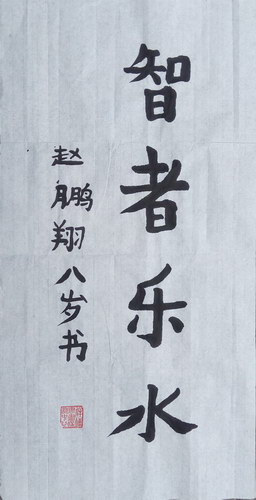 智者乐水
赵鹏翔八岁书